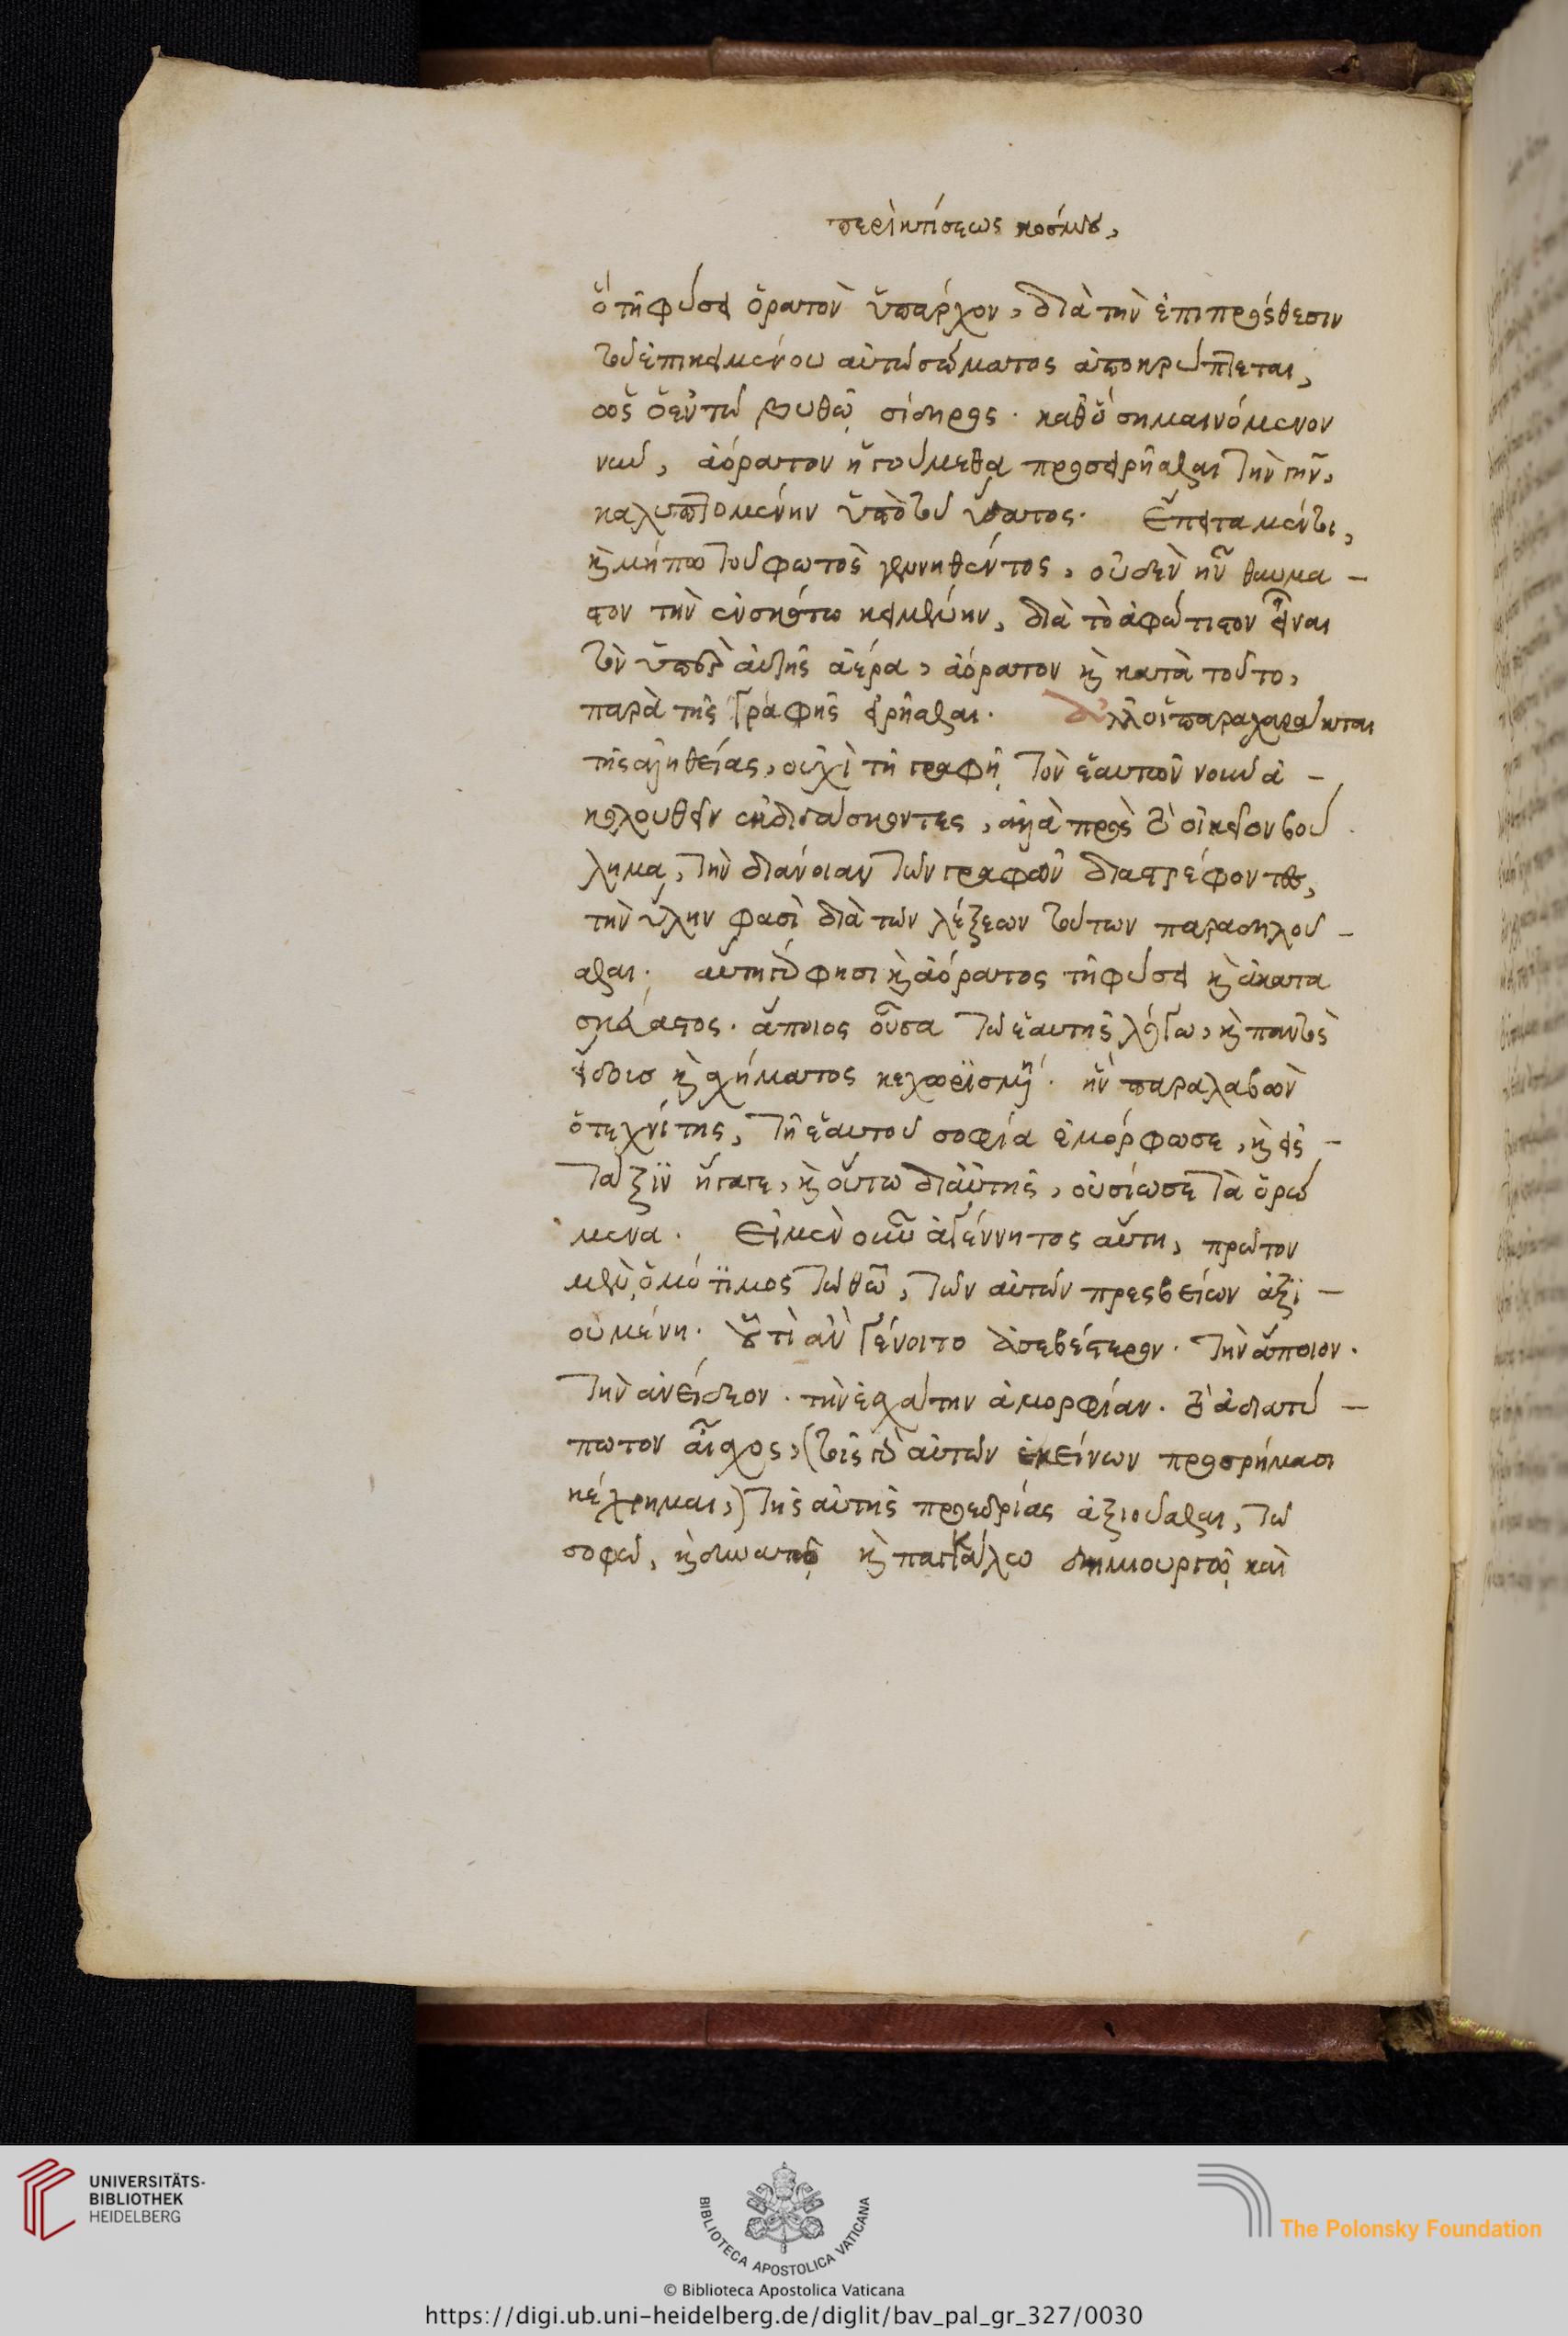 περὶ κτίσεως κόσμου,
ὃ τῆ φύσει ὁρατὸν ὑπάρχον, διὰ τὴν ἐπιπρόσθεσιν
τοῦ ἐπικειμένου αὐτῶ σώματος ἀποκρύπτεται,
ὡς ὁ ἐν τῶ βυθῶ σίδηρος· καθὃ σημαινόμενον
νῦν, ἀόρατον ἡγούμεθα προσειρῆσθαι τὴν γῆν,
καλυπτομένην ὑπὸ τοῦ ὕδατος· Ἔπειτα μέντοι,
καὶ μήπω τοῦ φωτὸς γεννηθέντος, οὐδὲν ἦν θαυμα-
στὸν τὴν ἐν σκότω κειμένην, διὰ τὸ ἀφώτιστον εἶναι
τὸν ὑπὲρ αὐτῆς ἀέρα, ἀόρατον καὶ κατὰ τοῦτο,
παρὰ τῆς γραφῆς εἰρῆσθαι· ἀλλ οἱ παραχαράκται
τῆς ἀληθείας, οὐχὶ τῆ γραφῆ τὸν ἑαυτῶν νοῦν ἀ-
κολουθεῖν ἐκδιδάσκοντες, ἀλλὰ πρὸς τὸ οἰκεῖον βού
λημα, τὴν διάνοιαν τῶν γραφῶν διαστρέφοντες,
τὴν ὕλην φασὶ διὰ τῶν λέξεων τούτων παραδηλοῦ-
σθαι· αὕτη γὰρ φησι καὶ ἀόρατος τῆ φύσει καὶ ἀκατα
σκεύαστος· ἄποιος οὖσα τῶ ἑαυτῆς λόγω, καὶ παντὸς
εἴδους καὶ σχήματος κεχωρισμένη· ἣν παραλαβὼν
ὁ τεχνίτης, τῆ ἑαυτοῦ σοφία ἐμόρφωσε, καὶ εἰς-
τάξιν ἤγαγε, καὶ οὕτω δι αὐτῆς, οὐσίωσε τὰ ὁρώ
μενα· Εἰ μὲν οὖν ἀγέννητος αὕτη, πρῶτον
μὲν, ὁμότιμος τῶ θεῶ, τῶν αὐτῶν πρεσβείων ἀξι-
ουμένη· οὗ τὶ ἂν γένοιτο ἀσεβέστερον· τὴν ἄποιον·
τὴν ἀνείδεον· τὴν ἐσχάτην ἀμορφίαν· τὸ ἀδιατύ-
πωτον αἶσχος, (τοῖς γὰρ αὐτῶν ἐκείνων προσρήμασι
κέχρημαι,) τῆς αὐτῆς προεδρίας ἀξιοῦσθαι, τῶ
σοφῶ, καὶ δυνατῶ καὶ παγκάλω δημιουργῶ καὶ
UNIVERSITÄTS-
BIBLIOTHEK
HEIDELBERG
BIBLIOTECA APOSTOLICA VATICANA
© Biblioteca Apostolica Vaticana
The Polonsky Foundation
https://digi.ub.uni-heidelberg.de/diglit/bav_pal_gr_327/0030